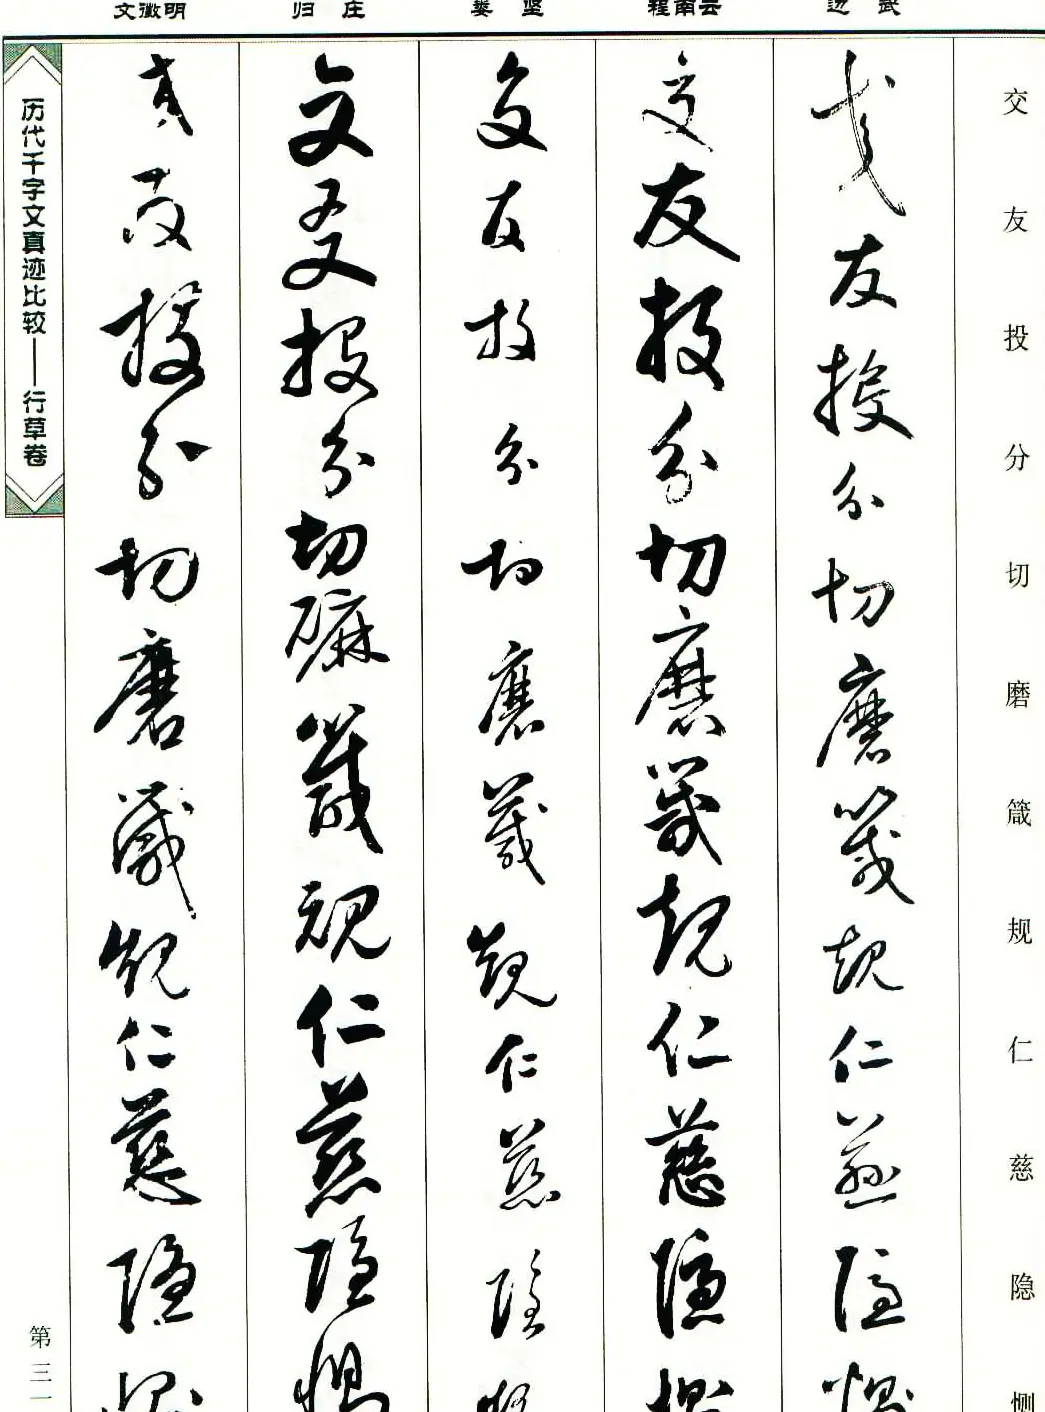 交友投分切磨箴规仁慈隐恻
边武
交友投分切磨箴規仁慈隱惻
程南云
交友投分切磨箴規仁慈隱惻
娄坚
交友投分切磨箴規仁慈隱惻
归庄
交友投分切磨箴規仁慈隱惻
文徵明
交友投分切磨箴規仁慈隱惻
历代千字文真迹比较——行草卷
第三一